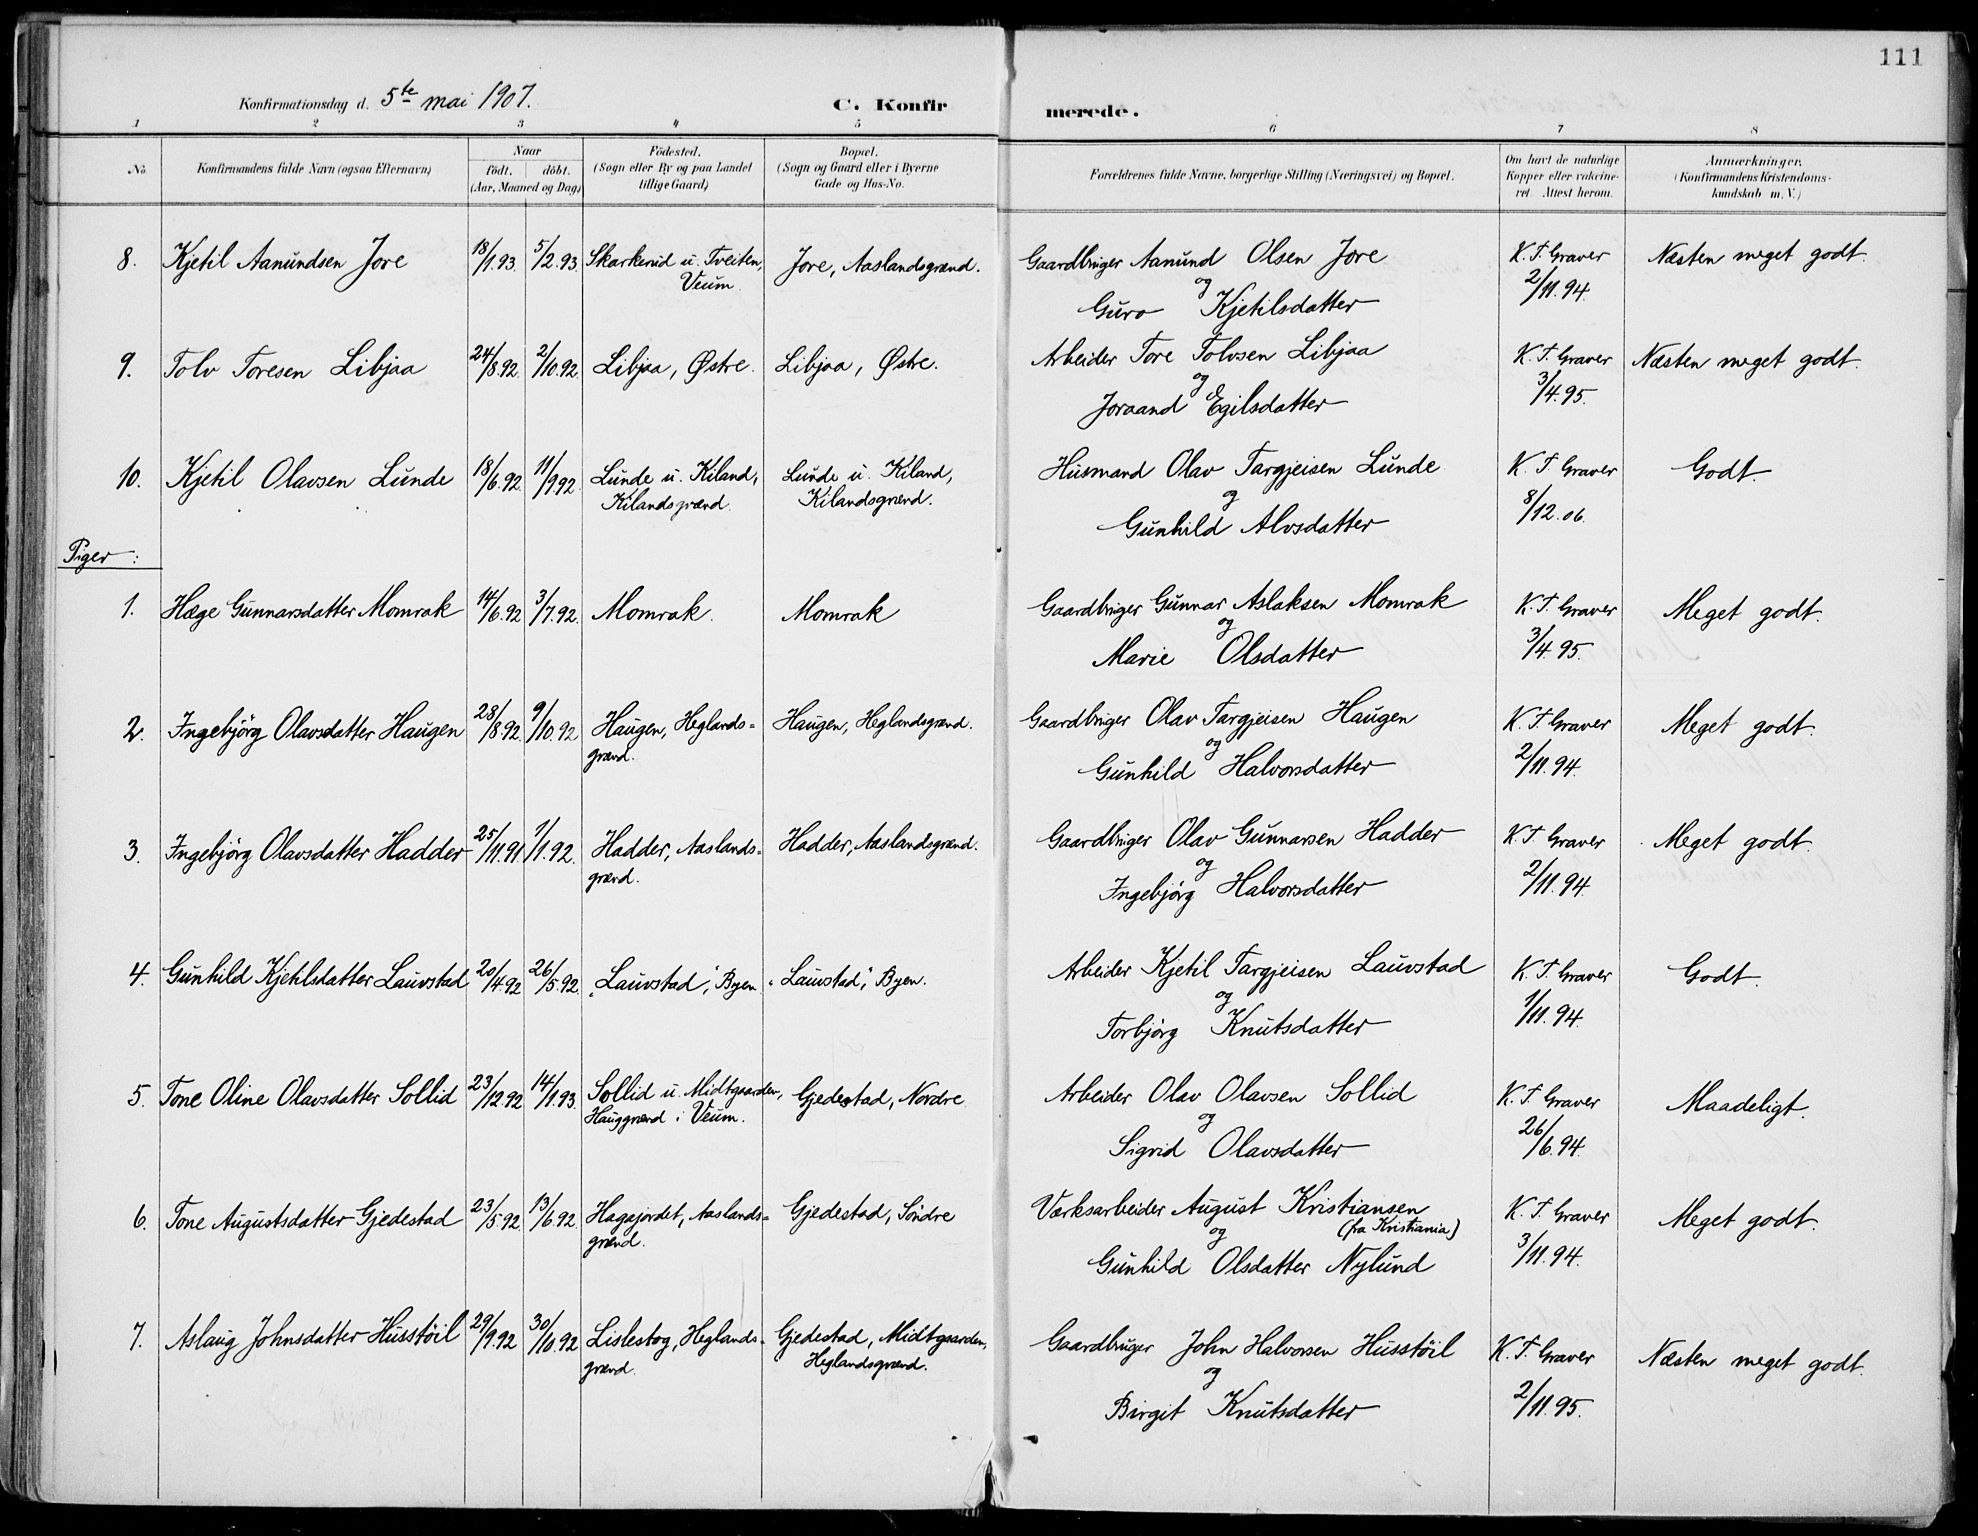 111
Konfirmationsdag d. 5te mai 1907.
C. Konfirmerede.
1 2 3 4 5 6 7 8
No. Konfirmandens fulde Navn (ogsaa Efternavn) Naar födt. döbt. (Aar, Maaned og Dag) Födested. (Sogn eller By og paa Landet tillige Gaard) Bopæl. (Sogn og Gaard eller i Byerne Gade og Hus-No. Forældrenes fulde Navne, borgerlige Stilling (Næringsvei) og Bopæl. Om havt de naturlige Kopper eller vakcineret. Attest herom. Anmærkninger. (Konfirmandens Kristendomskundskab m. V.)
8. Kjetil Aanundsen Jore 18/1.93. 5/2.93. Skarkerud u. Tveiten, Jore, Aaslandsgrænd. Gaardbruger Aanund Olsen Jore K. T. Graver Næsten meget godt.
Veum. og 2/11.94.
Guro Kjetilsdatter
9. Tolv Toresen Libjaa 24/8.92. 2/10.92. Libjaa, Østre. Libjaa, Østre. Arbeider Tore Tolvsen Libjaa K. T. Graver Næsten meget godt.
og 3/4.95.
Joraand Egilsdatter
10. Kjetil Olavsen Lunde 18/6.92. 11/9.92. Lunde u. Kiland, Lunde u. Kiland, Husmand Olav Targjeisen Lunde K. T. Graver Godt.
Kilandsgrænd. Kilandsgrænd. og 8/12.06.
Gunhild Alvsdatter
Piger:
1. Hæge Gunnarsdatter Momrak 14/6.92 3/7.92. Momrak. Momrak Gaardbruger Gunnar Aslaksen Momrak K. T. Graver Meget godt.
og 3/4.95.
Marie Olsdatter
2. Ingebjörg Olavsdatter Haugen 28/8.92. 9/10.92 Haugen, Heglands= Haugen, Heglandsgrænd. Gaardbruger Olav Targjeisen Haugen K. T. Graver Meget godt.
grænd. og 2/11.94.
Gunhild Halvorsdatter
3. Ingebjörg Olavsdatter Hadder 25/11.91 1/1.92. Hadder, Aaslands= Hadder, Aaslandsgrænd. Gaardbruger Olav Gunnarsen Hadder K. T. Graver Meget godt.
grænd. og 2/11.94
Ingebjörg Halvorsdatter
4. Gunhild Kjetilsdatter Lauvstad 20/4.92 26/5.92. „Lauvstad", Byen „Lauvstad", Byen. Arbeider Kjetil Targjeisen Lauvstad K. T. Graver Godt.
og 1/11.94.
Torbjörg Knutsdatter
5. Tone Oline Olavsdatter Sollid 23/12.92 14/1.93. Sollid u. Midtgaarden, Gjedestad, Nordre Arbeider Olav Olavsen Sollid K. T. Graver Maadeligt.
Hauggrænd i Veum. og 26/6.94.
Sigrid Olavsdatter
6. Tone Augustsdatter Gjedestad 23/5.92. 13/6.92. Hagajordet, Aaslands= Gjedestad, Söndre Værksarbeider August Kristiansen K. T. Graver Meget godt.
grænd. og (fra Kristiania) 3/11.94.
Gunhild Olsdatter Nylund
7. Aslaug Johnsdatter Husstöil 29/9.92 30/10.92 Lislestog, Heglands= Gjedestad, Midtgaarden, Gaardbruger John Halvorsen Husstöil K. T. Graver Næsten meget godt.
grænd. Heglandsgrænd. og 2/11.95.
Birgit Knutsdatter